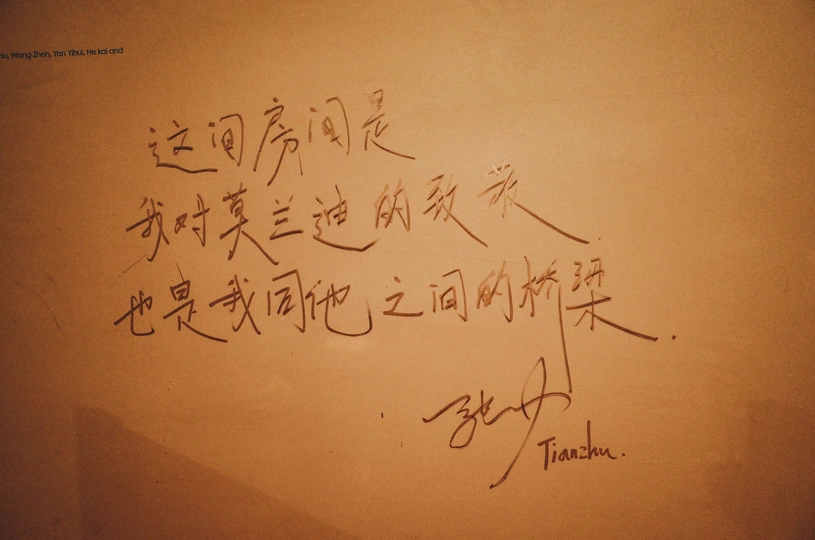 hu, Wang Zhen, Yan Yihui, He kai and
这间房间是
我对莫兰迪的致敬
也是我同他之间的桥梁.
Tianzhu.